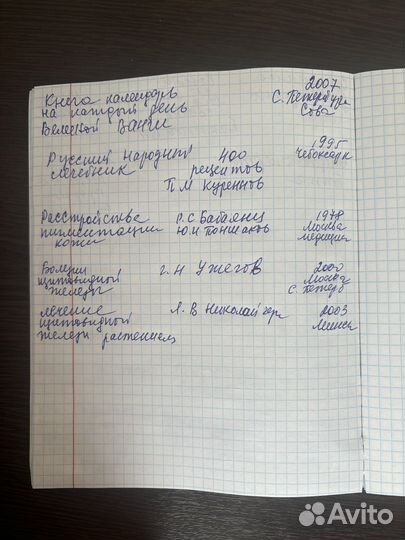 Книга календарь 2007
на каждый день С. Петербург
Великой Ванги Сова
Русский Народный 400 1995
лечебник рецептов Чебоксары
П М Куреннов
Расстройства Р. С Бабаянц 1978
пигментации Ю И Лоншаков Москва
кожи медицина
Болезни Г. Н Ужегов 2000
щитовидной Москва
железы С Петерб
лечение Л. В Николайчук 2003
щитовидной Минск
железы растением
Avito